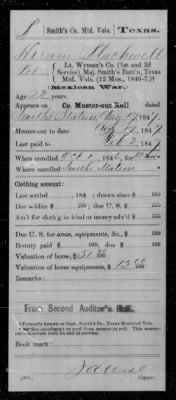 S | Smith's Co. Mtd. Vols. | Texas.
Hiram Blackwell
Lt. Wyman's Co. (1st and 2d
Service), Maj. Smith's Batt'n, Texas
Mtd. Vols. (12 Mos., 1846-7.)†
Mexican War.
Age 22 years.
Appears on Co. Muster-out Roll dated
Smiths Station Aug 19, 1847.
Muster-out to date Aug 19, 1847
Last paid to Feb 2, 1847
When enrolled Oct 1, 1846, for 12 mo
Where enrolled Smiths Station
Clothing account:
Last settled , 184 ; drawn since $ 100
Due soldier $ 100; due U. S. $ 100
Am't for cloth'g in kind or money adv'd $ 100
Due U. S. for arms, equipments, &c., $ 100
Bounty paid $ 100; due $ 100
Valuation of horse, $ 50 00/100
Valuation of horse equipments, $ 12 00/100
Remarks:
From Second Auditor's Roll.
Book mark:
Copyist.